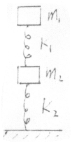 m₁
K₁
m₂
K₂